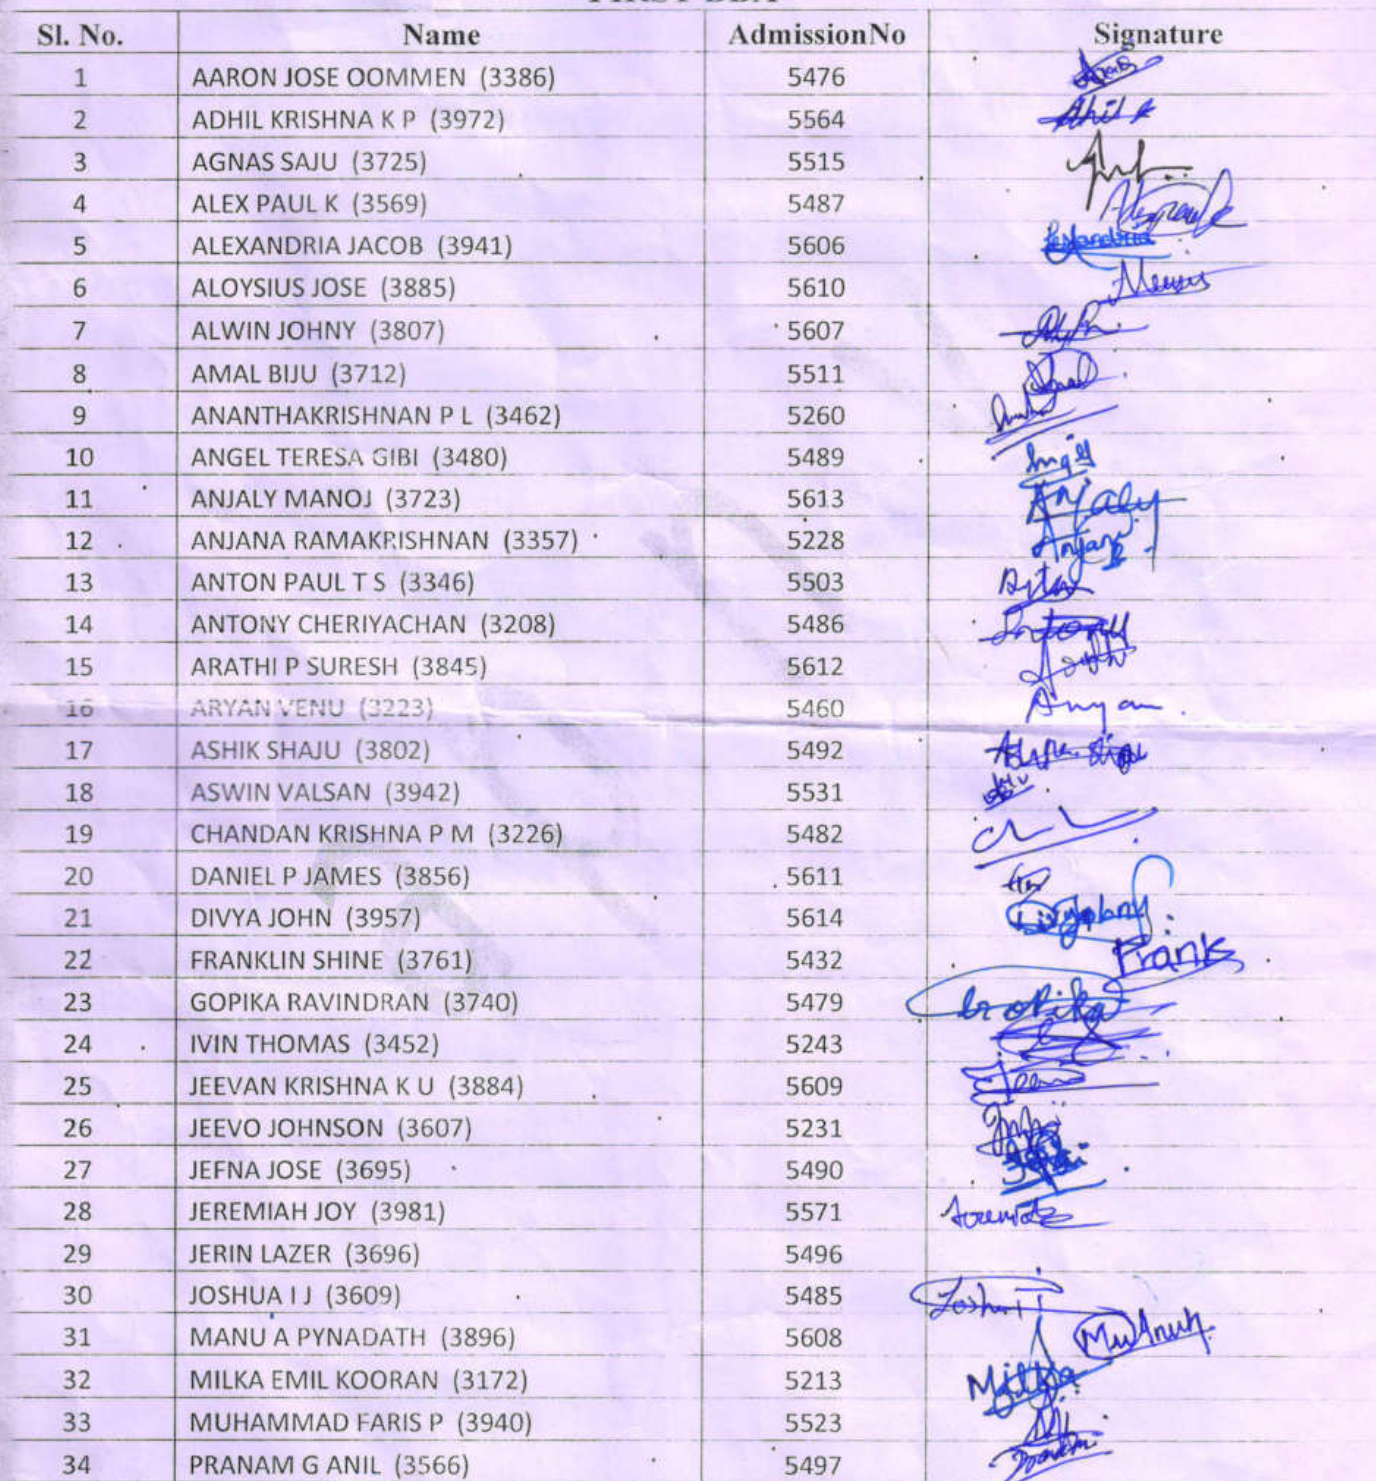 Sl. No. Name AdmissionNo Signature
1 AARON JOSE OOMMEN (3386) 5476
2 ADHIL KRISHNA K P (3972) 5564
3 AGNAS SAJU (3725) 5515
4 ALEX PAUL K (3569) 5487
5 ALEXANDRIA JACOB (3941) 5606
6 ALOYSIUS JOSE (3885) 5610
7 ALWIN JOHNY (3807) 5607
8 AMAL BIJU (3712) 5511
9 ANANTHAKRISHNAN P L (3462) 5260
10 ANGEL TERESA GIBI (3480) 5489
11 ANJALY MANOJ (3723) 5613 Anjaly
12 ANJANA RAMAKRISHNAN (3357) 5228 Anjana R
13 ANTON PAUL T S (3346) 5503
14 ANTONY CHERIYACHAN (3208) 5486 Antony
15 ARATHI P SURESH (3845) 5612
16 ARYAN VENU (3223) 5460 Aryan
17 ASHIK SHAJU (3802) 5492
18 ASWIN VALSAN (3942) 5531
19 CHANDAN KRISHNA P M (3226) 5482
20 DANIEL P JAMES (3856) 5611
21 DIVYA JOHN (3957) 5614
22 FRANKLIN SHINE (3761) 5432 Frank
23 GOPIKA RAVINDRAN (3740) 5479 Gopika
24 IVIN THOMAS (3452) 5243
25 JEEVAN KRISHNA K U (3884) 5609
26 JEEVO JOHNSON (3607) 5231
27 JEFNA JOSE (3695) 5490
28 JEREMIAH JOY (3981) 5571
29 JERIN LAZER (3696) 5496
30 JOSHUA I J (3609) 5485
31 MANU A PYNADATH (3896) 5608
32 MILKA EMIL KOORAN (3172) 5213 Milka
33 MUHAMMAD FARIS P (3940) 5523
34 PRANAM G ANIL (3566) 5497